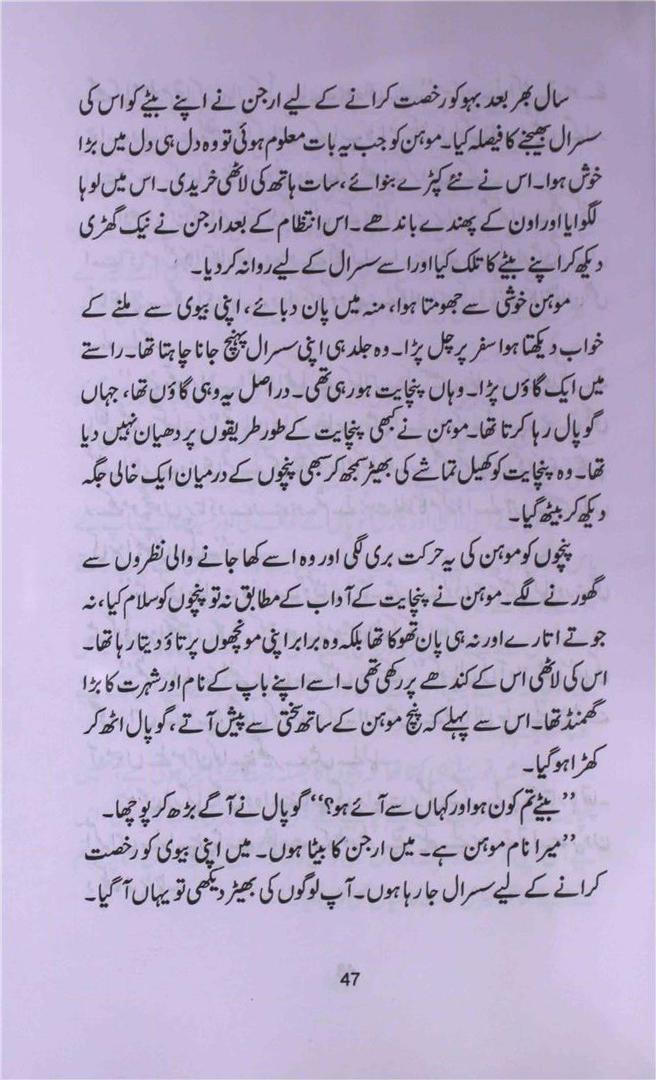 سال بھر بعد بہو کو رخصت کرانے کے لیے ارجن نے اپنے بیٹے کو اس کی
سسرال بھیجنے کا فیصلہ کیا۔ موہن کو جب یہ بات معلوم ہوئی تو وہ دل ہی دل میں بڑا
خوش ہوا۔ اس نے نئے کپڑے بنوائے، سات ہاتھ کی لاٹھی خریدی۔ اس میں لوہا
لگوایا اور اون کے پھندے باندھے۔ اس انتظام کے بعد ارجن نے نیک گھڑی
دیکھ کر اپنے بیٹے کا تلک کیا اور اسے سسرال کے لیے روانہ کر دیا۔
موہن خوشی سے جھومتا ہوا، منہ میں پان دبائے، اپنی بیوی سے ملنے کے
خواب دیکھتا ہوا سفر پر چل پڑا۔ وہ جلد ہی اپنی سسرال پہنچ جانا چاہتا تھا۔ راستے
میں ایک گاؤں پڑا۔ وہاں پنچایت ہو رہی تھی۔ دراصل یہ وہی گاؤں تھا، جہاں
گوپال رہا کرتا تھا۔ موہن نے کبھی پنچایت کے طور طریقوں پر دھیان نہیں دیا
تھا۔ وہ پنچایت کو کھیل تماشے کی بھیڑ سمجھ کر سبھی پنچوں کے درمیان ایک خالی جگہ
دیکھ کر بیٹھ گیا۔
پنچوں کو موہن کی یہ حرکت بری لگی اور وہ اسے کھا جانے والی نظروں سے
گھورنے لگے۔ موہن نے پنچایت کے آداب کے مطابق نہ تو پنچوں کو سلام کیا، نہ
جوتے اتارے اور نہ ہی پان تھوکا تھا بلکہ وہ برابر اپنی مونچھوں پر تاؤ دیتا رہا تھا۔
اس کی لاٹھی اس کے کندھے پر رکھی تھی۔ اسے اپنے باپ کے نام اور شہرت کا بڑا
گھمنڈ تھا۔ اس سے پہلے کہ پنچ موہن کے ساتھ سختی سے پیش آتے، گوپال اٹھ کر
کھڑا ہو گیا۔
’’بیٹے تم کون ہو اور کہاں سے آئے ہو؟‘‘ گوپال نے آگے بڑھ کر پوچھا۔
’’میرا نام موہن ہے۔ میں ارجن کا بیٹا ہوں۔ میں اپنی بیوی کو رخصت
کرانے کے لیے سسرال جا رہا ہوں۔ آپ لوگوں کی بھیڑ دیکھی تو یہاں آ گیا۔
47